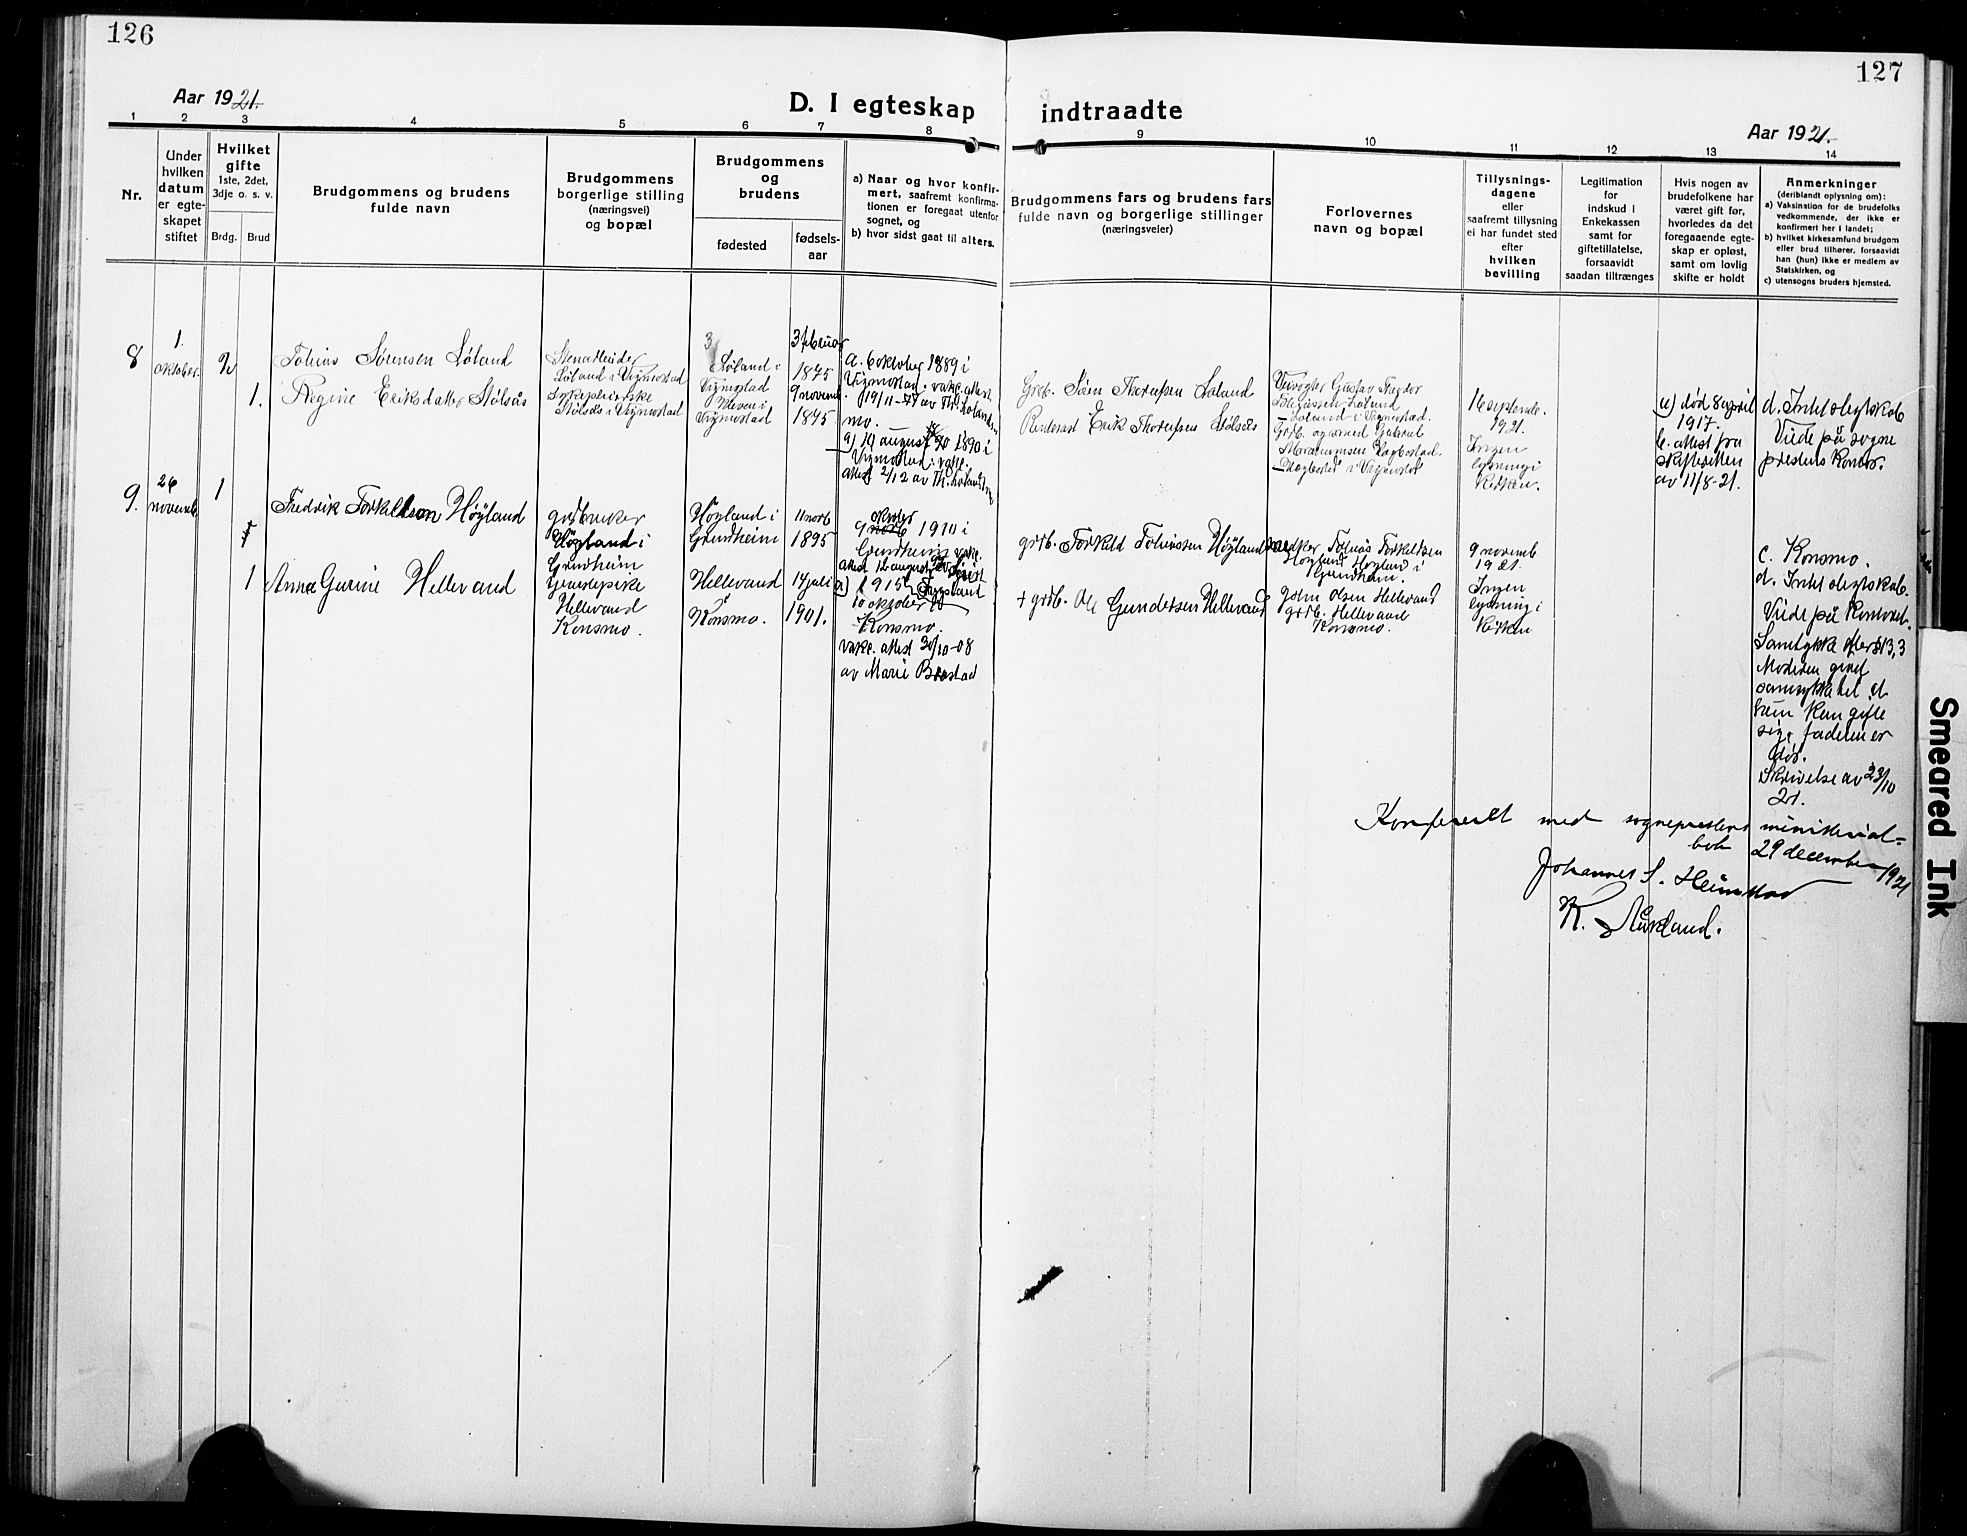 126
127
Aar 1921.
D. I egteskap indtraadte
Aar 1921.
1 2 3 4 5 6 7 8 9 10 11 12 13 14
Nr.
Under
hvilken
datum
er egte-
skapet
stiftet
Hvilket
gifte
1ste, 2det,
3dje o. s. v.
Brdg. Brud
Brudgommens og brudens
fulde navn
Brudgommens
borgerlige stilling
(næringsvei)
og bopæl
Brudgommens
og
brudens
fødested
fødsels-
aar
a) Naar og hvor konfir-
mert, saafremt konfirma-
tionen er foregaat utenfor
sognet, og
b) hvor sidst gaat til alters.
Brudgommens fars og brudens fars
fulde navn og borgerlige stillinger
(næringsveier)
Forlovernes
navn og bopæl
Tillysnings-
dagene
eller
saafremt tillysning
ei har fundet sted
efter
hvilken
bevilling
Legitimation
for
indskud i
Enkekassen
samt for
giftetillatelse,
forsaavidt
saadan tiltrænges
Hvis nogen av
brudefolkene har
været gift før,
hvorledes da det
foregaaende egte-
skap er opløst,
samt om lovlig
skifte er holdt
Anmerkninger
(deriblandt oplysning om):
a) Vaksination for de brudefolks
vedkommende, der ikke er
konfirmert her i landet;
b) hvilket kirkesamfund brudgom
eller brud tilhører, forsaavidt
han (hun) ikke er medlem av
Statskirken, og
c) utensogns bruders hjemsted.
8
1.
oktober.
2
Tobias Sørensen Løland
Løland i Vigmostad
Løland i
Vigmostad
3 februar
1875
a. 6 oktober 1889 i
Vigmostad. vakc. attest
19/11-77 av Th. Løland
Grdb. Søren Løland
Løland i Vigmostad.
16 septemb.
1921.
Ingen
lysning i
kirken.
a) død 8 april
1917.
b. attest fra
skifteretten
av 11/8-21.
d. Intet slegtskab
Viede på sogne
prestens kontor.
1.
Regine Eriksdatter Stølsås
Sykepleierske
Stølsås i Vigmostad
Vigmostad
9 novemb.
1875
a) 19 august 1890 i
Vigmostad: vakc.
attest 2/12 av Th. Løland
Erik Stølsås
i Vigmostad
9.
26
novemb.
1
Fredrik Torkeldsen Høyland
grdbruker
Høyland i
Grindheim
Høyland i
Grindheim
11 novb
1895
oktober
9 novb 1910 i
Grindheim vakc.
attest 12 august
grdb. Torkeld Tobiassen Høyland
Tobias Torkeldsen
Høyland Høyland i
Grindheim.
9 novemb
1921.
Ingen
lysning i
kirken
c. Konsmo.
d. Intet slegtskab.
Viede på kontoret.
Samtykke efter § 13,3
Moderen givet
samtykke til at
hun kan gifte
sig, faderen er
død.
Skrivelse av 23/10
21.
1
Anna Gurine Hellevand
Hellevand
Konsmo.
Hellevand
Konsmo.
17 juli
1901.
a) 1915
10 oktober
Konsmo.
vakc. attest 30/10-08
av Marie Brastad
+ grdb. Ole Gundersen Hellevand
John Olsen Hellevand
grdb. Hellevand
Konsmo.
Konferert med sogneprestens ministerial-
bok 29 december 1921
Johannes S. Heimstad
K. Aurland.
Smeared Ink